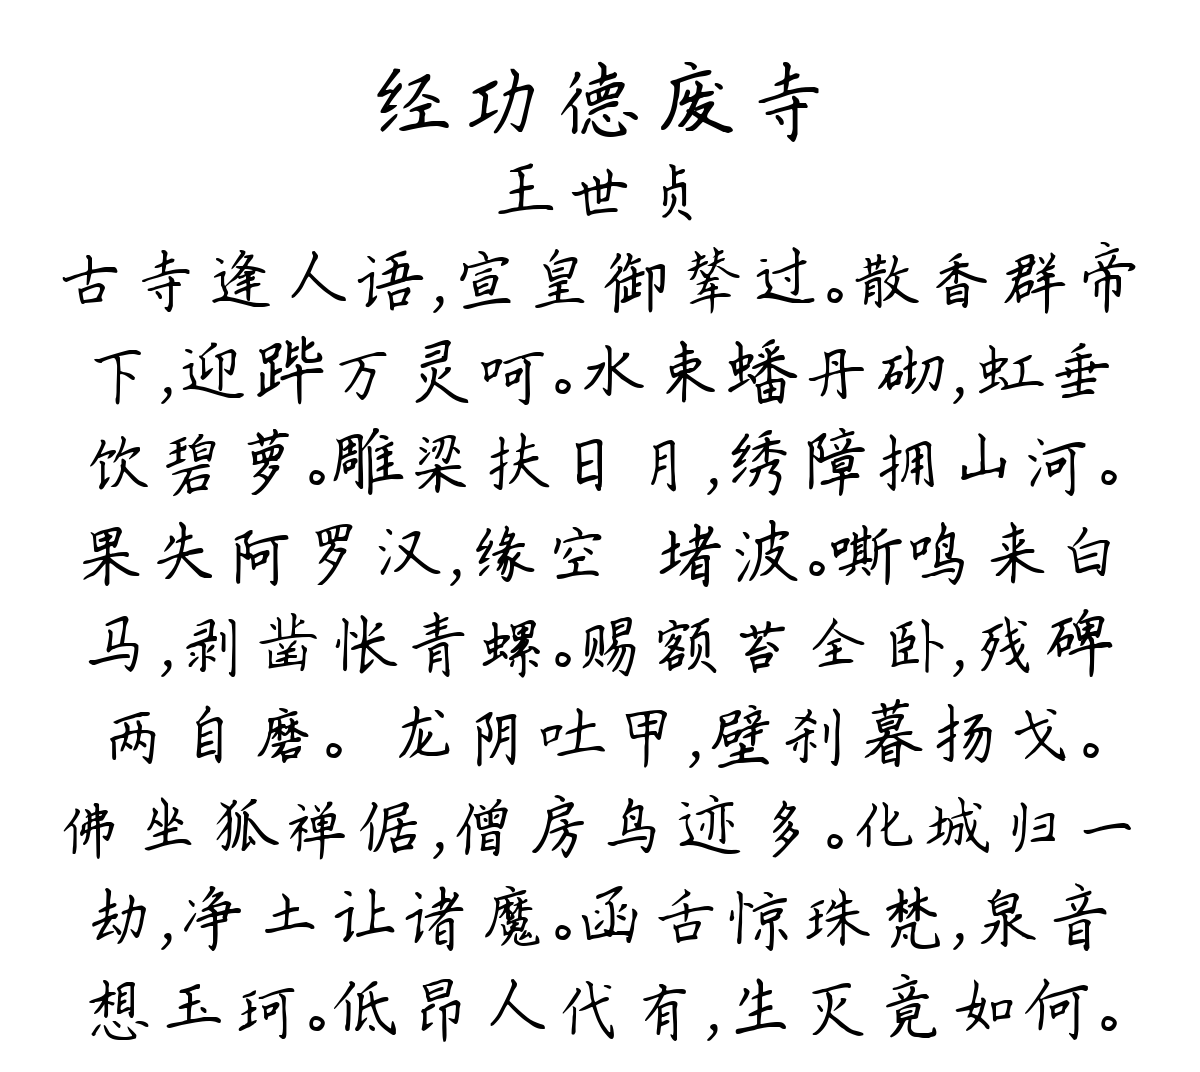 经功德废寺
王世贞
古寺逢人语,宣皇御辇过。散香群帝
下,迎跸万灵呵。水束蟠丹砌,虹垂
饮碧萝。雕梁扶日月,绣障拥山河。
果失阿罗汉,缘空 堵波。嘶鸣来白
马,剥凿怅青螺。赐额苔全卧,残碑
两自磨。 龙阴吐甲,壁刹暮扬戈。
佛坐狐禅倨,僧房鸟迹多。化城归一
劫,净土让诸魔。函舌惊珠梵,泉音
想玉珂。低昂人代有,生灭竟如何。